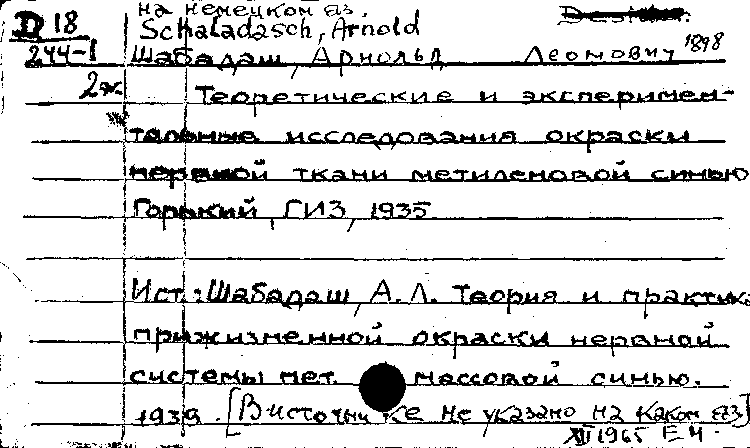 на немецком яз.
D 18 Schaladasch, Arnold
244-1 Шабадаш, Арнольд Леонович 1898
2ж. Теоретические и эксперимен-
тальные исследования окраски
нервной ткани метиленовой синью
Горький, ГИЗ, 1935
Ист.: Шабадаш, А. Л. Теория и практика
прижизненной окраски нервной
системы мет. массовой синью.
1939. [В источнике не указано на каком яз.]
XII 1965 Е.Ч.